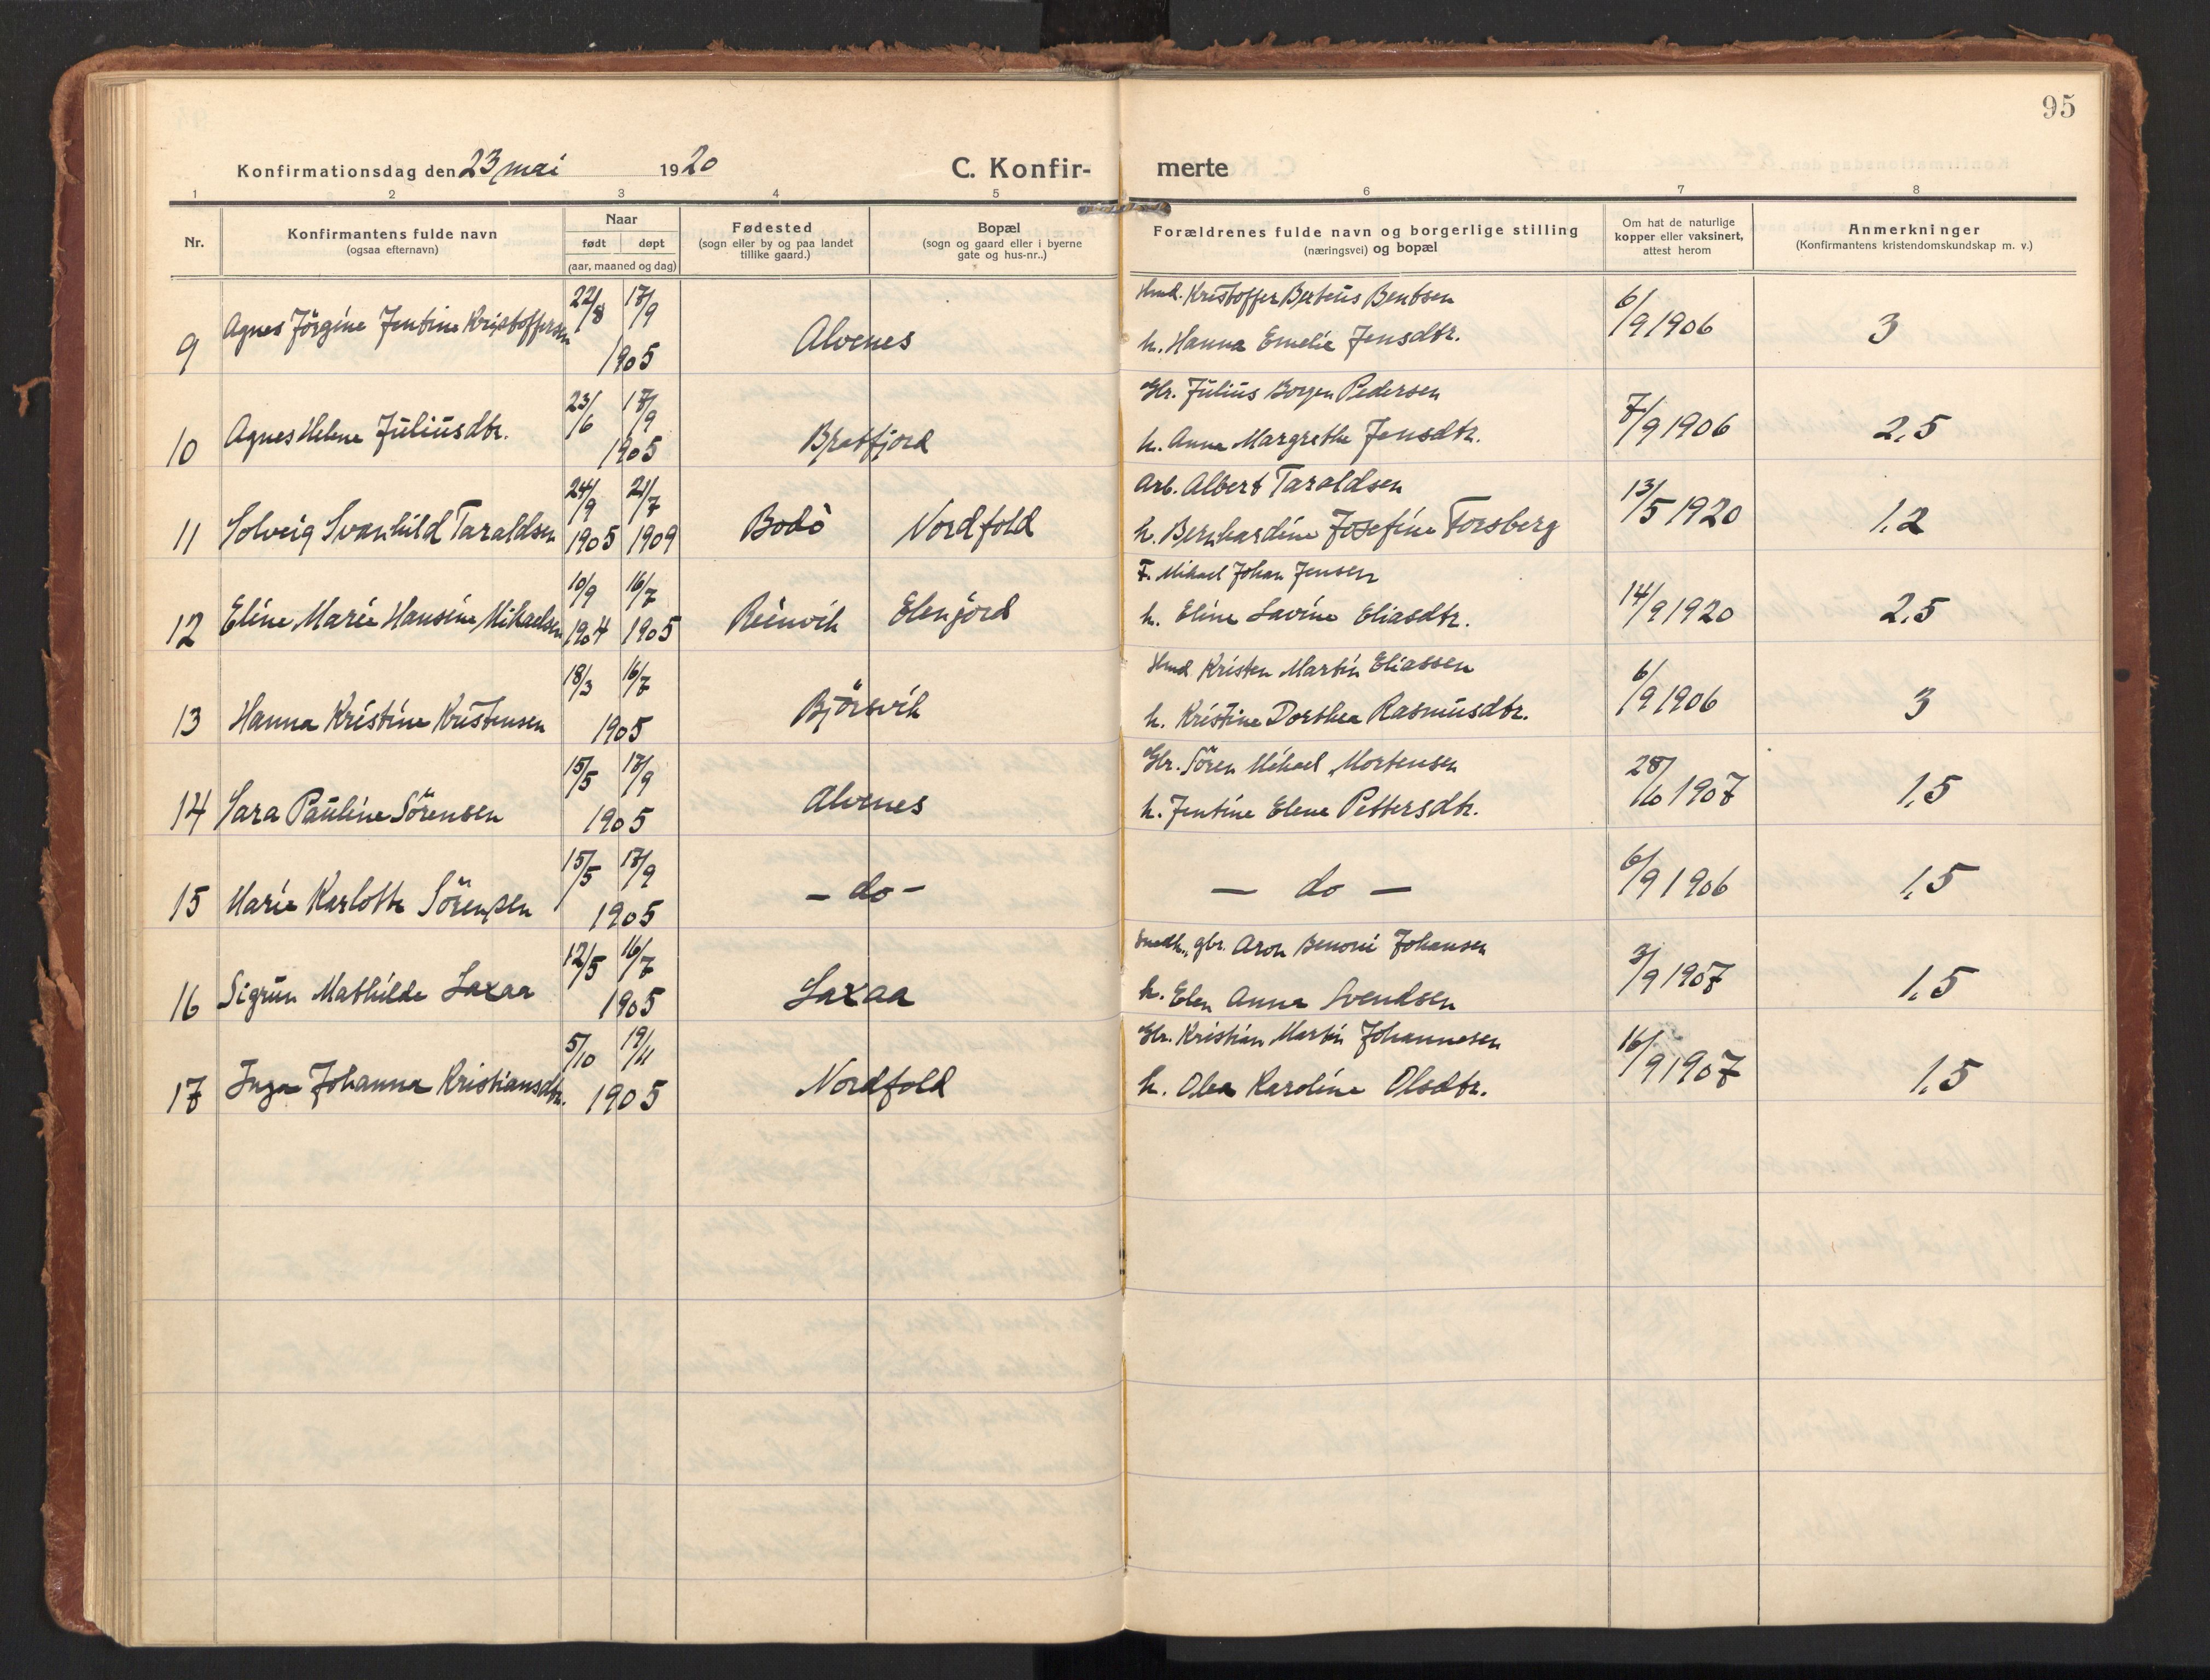 95
Konfirmationsdag den 23 mai 1920 C. Konfir- merte
1 2 3 4 5 6 7 8
Nr.
Konfirmantens fulde navn
(ogsaa efternavn)
Naar
født døpt
(aar, maaned og dag)
Fødested
(sogn eller by og paa landet
tillike gaard.)
Bopæl
(sogn og gaard eller i byerne
gate og hus-nr..)
Forældrenes fulde navn og borgerlige stilling
(næringsvei) og bopæl
Om hat de naturlige
kopper eller vaksinert,
attest herom
Anmerkninger
(Konfirmantens kristendomskundskap m. v.)
22/8 17/9 Hmd. Kristoffer Berteus Bentsen 6/9 1906
9 Agnes Jörgine Jentine Kristoffersen 1905 Alvenes h. Hanna Emelie Jensdtr. 3
23/6 17/9 Gbr. Julius Borgen Pedersen 7/9 1906
10 Agnes Helene Juliusdtr. 1905 Brætfjord h. Anna Margrethe Jensdtr. 2,5
24/9 21/7 Arb. Albert Taraldsen 13/5 1920
11 Solveig Svanhild Taraldsen 1905 1909 Bodö Nordfold h. Bernhardine Josefine Forsberg 1,2
10/9 16/7 F. Mikael Johan Jensen 14/9 1920
12 Eline Marie Hansine Mikaelsen 1904 1905 Reinvik Elenjord h. Eline Lavine Eliasdtr. 2,5
18/3 16/7 Hmd Kristen Martin Eliassen 6/9 1906
13 Hanna Kristine Kristensen 1905 Björsvik h. Kristine Dorthea Rasmusdtr. 3
15/5 17/9 Gbr. Sören Mikael Mortensen 28/10 1907
14 Sara Pauline Sörensen 1905 Alvenes h. Jentine Elene Pettersdtr. 1,5
15/5 17/9 6/9 1906
15 Marie Karlotte Sörensen 1905 - do - - do - 1,5
12/5 16/7 gbr. Aron Benoni Johansen 3/9 1907
16 Sigrun Mathilde Laxaa 1905 Laxaa h. Elen Anna Svendsen 1,5
5/10 19/11 Gbr. Kristian Martin Johannesen 16/9 1907
17 Inga Johanna Kristiansdtr. 1905 Nordfold h. Olea Karoline Olsdtr. 1,5